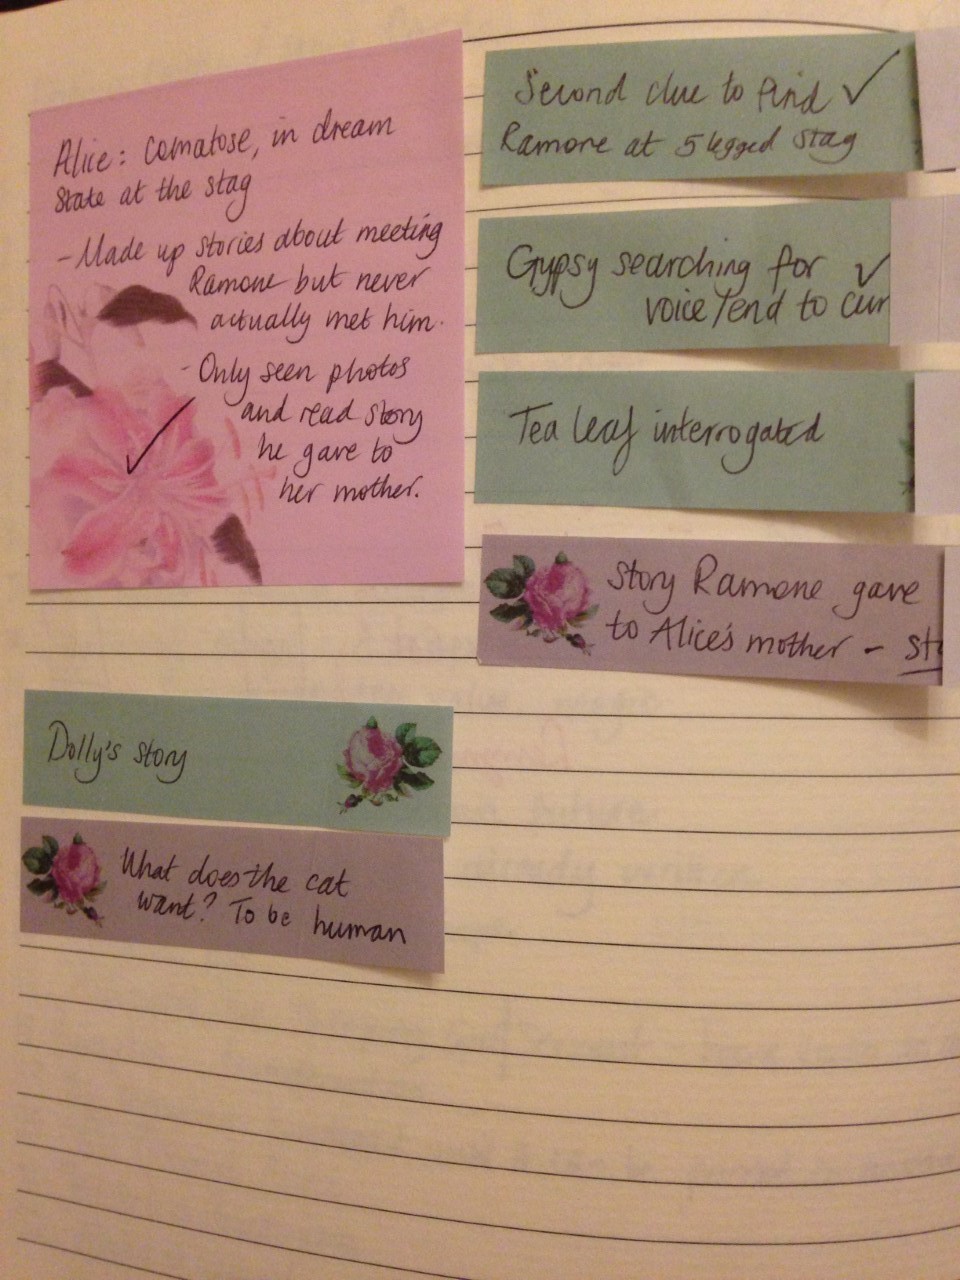 Alice: Comatose, in dream
state at the stag
- Made up stories about meeting
Ramone but never
actually met him.
- Only seen photos
and read story
he gave to
her mother.
✓
Second clue to find ✓
Ramone at 5 legged stag
Gypsy searching for ✓
voice/end to cur
Tea leaf interrogated
Story Ramone gave
to Alice's mother - st
Dolly's story
What does the cat
want? To be human